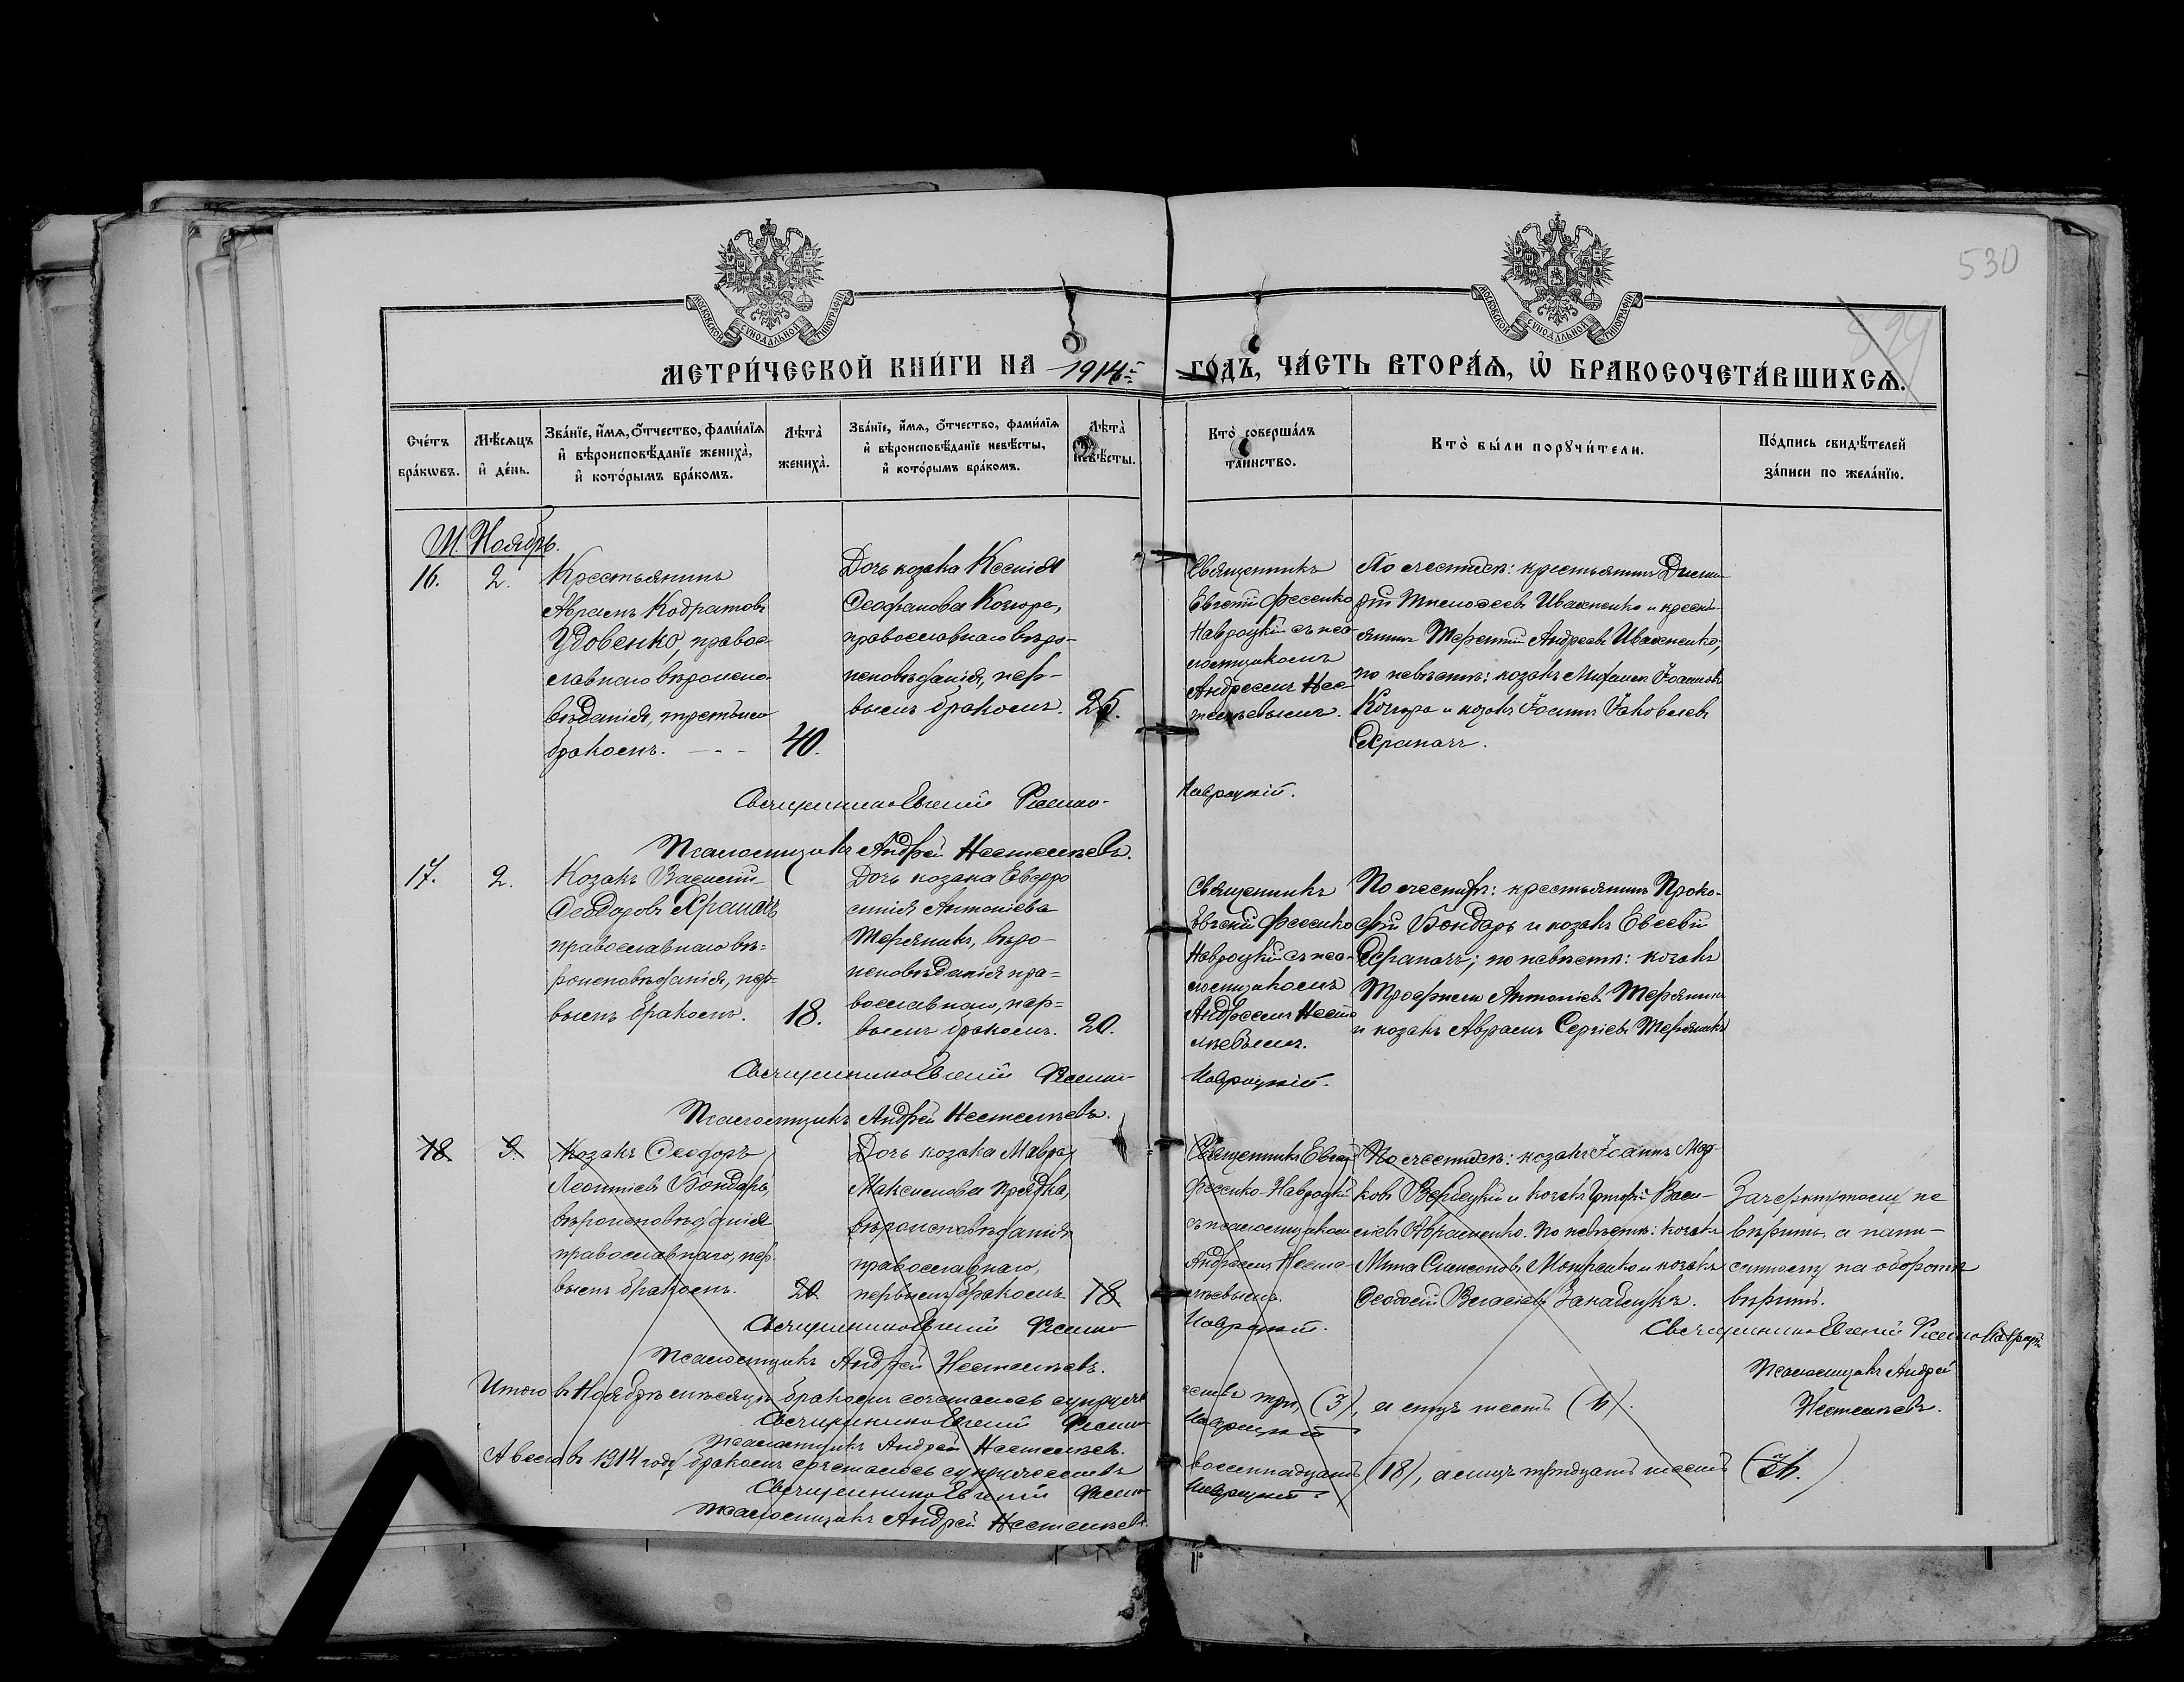 530
МОСКОВСКОЙ СѴНОДАЛЬНОЙ ТИПОГРАФІИ
МОСКОВСКОЙ СѴНОДАЛЬНОЙ ТИПОГРАФІИ
МЕТРИ́ЧЕСКОЙ КНИ́ГИ НА 1914 ГО́ДЪ, ЧА́СТЬ ВТОРА́Я, Ѡ БРАКОСОЧЕТА́ВШИХСЯ.
Сче́тъ бра́кѡвъ.
Мѣ́сяцъ и҆ де́нь.
Зва́нїе, и҆́мя, ѻ҆́тчество, фами́лїя
и҆ вѣроисповѣ́данїе жениха̀,
и҆ кото́рымъ бра́комъ.
Лѣта̀ жениха̀.
Зва́нїе, и҆́мя, ѻ҆́тчество, фами́лїя
и҆ вѣроисповѣ́данїе невѣ́сты,
и҆ кото́рымъ бра́комъ.
Лѣта̀ невѣ́сты.
Кто̀ соверша́лъ
та́инство.
Кто̀ бы́ли порꙋчи́тели.
По́дпись свидѣ́телей
за́писи по жела́нїю.
М. Ноябрь.
16.
2.
Крестьянинъ
Авраамъ Кодратовъ
Удовенко, правос-
лавнаго вѣроиспо-
вѣданія, третьимъ
бракомъ. - - -
40.
Дочь козака Ксенія
Ѳеофанова Кочюра,
православнаго вѣро-
исповѣданія, пер-
вымъ бракомъ.
25.
Священникъ
Евгеній Фесенко
Навроцкій съ пса-
ломщикомъ
Андреемъ Нес-
темѣевымъ.
По женихѣ: крестьянинъ Дими-
трій Тимоѳеевъ Ивахненко и кресть-
янинъ Терентій Андреевъ Ивахненко;
по невѣстѣ: козакъ Михаилъ Іоанновъ
Кочюра и козакъ Іоаннъ Іаковлевъ
Храпачъ.
Священникъ Евгеній Фесенко-
Навроцкій.
Псаломщикъ Андрей Нестемѣевъ.
17.
2.
Козакъ Василій
Ѳеодоровъ Храпачъ
православнаго вѣ-
роисповѣданія, пер-
вымъ бракомъ.
18.
Дочь козака Евфро
синія Антоніева
Теряникъ, вѣро-
исповѣданія пра-
вославнаго, пер-
вымъ бракомъ.
20.
Священникъ
Евгеній Фесенко
Навроцкій съ пса-
ломщикомъ
Андреемъ Несте
мѣевымъ.
По женихѣ: крестьянинъ Проко-
фій Бондарь и козакъ Евсевій
Храпачъ; по невѣстѣ: козакъ
Трофимъ Антоніевъ Теряникъ
и козакъ Авраамъ Сергіевъ Теряникъ
Священникъ Евгеній Фесенко-
Навроцкій.
Псаломщикъ Андрей Нестемѣевъ.
18.
9.
Козакъ Ѳеодоръ
Леонтіевъ Бондарь,
вѣроисповѣданія
православнаго, пер-
вымъ бракомъ.
20.
Дочь козака Мавра
Максимова Прядка,
вѣроисповѣданія
православнаго,
первымъ бракомъ
18.
Священникъ Евгеній
Фесенко-Навроцкій
съ псаломщикомъ
Андреемъ Несте-
мѣевымъ.
По женихѣ: козакъ Іоаннъ
и козакъ Григорій Васи-
ліевъ Авраменко. По невѣстѣ: козакъ
и козакъ
Ѳеодосій Власіевъ
Зачеркнутому не
вѣрить, а напи-
санному на оборотѣ
вѣрить.
Священникъ Евгеній Фесенко-
Навроцкій.
Псаломщикъ Андрей Нестемѣевъ.
Священникъ Евгеній Фесенко Навроц.
Псаломщикъ Андрей
Нестемѣевъ.
Итого въ Ноябрѣ мѣсяцѣ бракомъ сочеталось супруже
ствъ три, (3), а лицъ шесть (6).
Священникъ Евгеній Фесенко-
Навроцкій
Псаломщикъ Андрей Нестемѣевъ.
А всего въ 1914 году бракомъ сочеталось супружествъ
восемнадцать (18), а лицъ тридцать шесть (36.)
Священникъ Евгеній Фесенко-
Навроцкій
Псаломщикъ Андрей Нестемѣевъ.